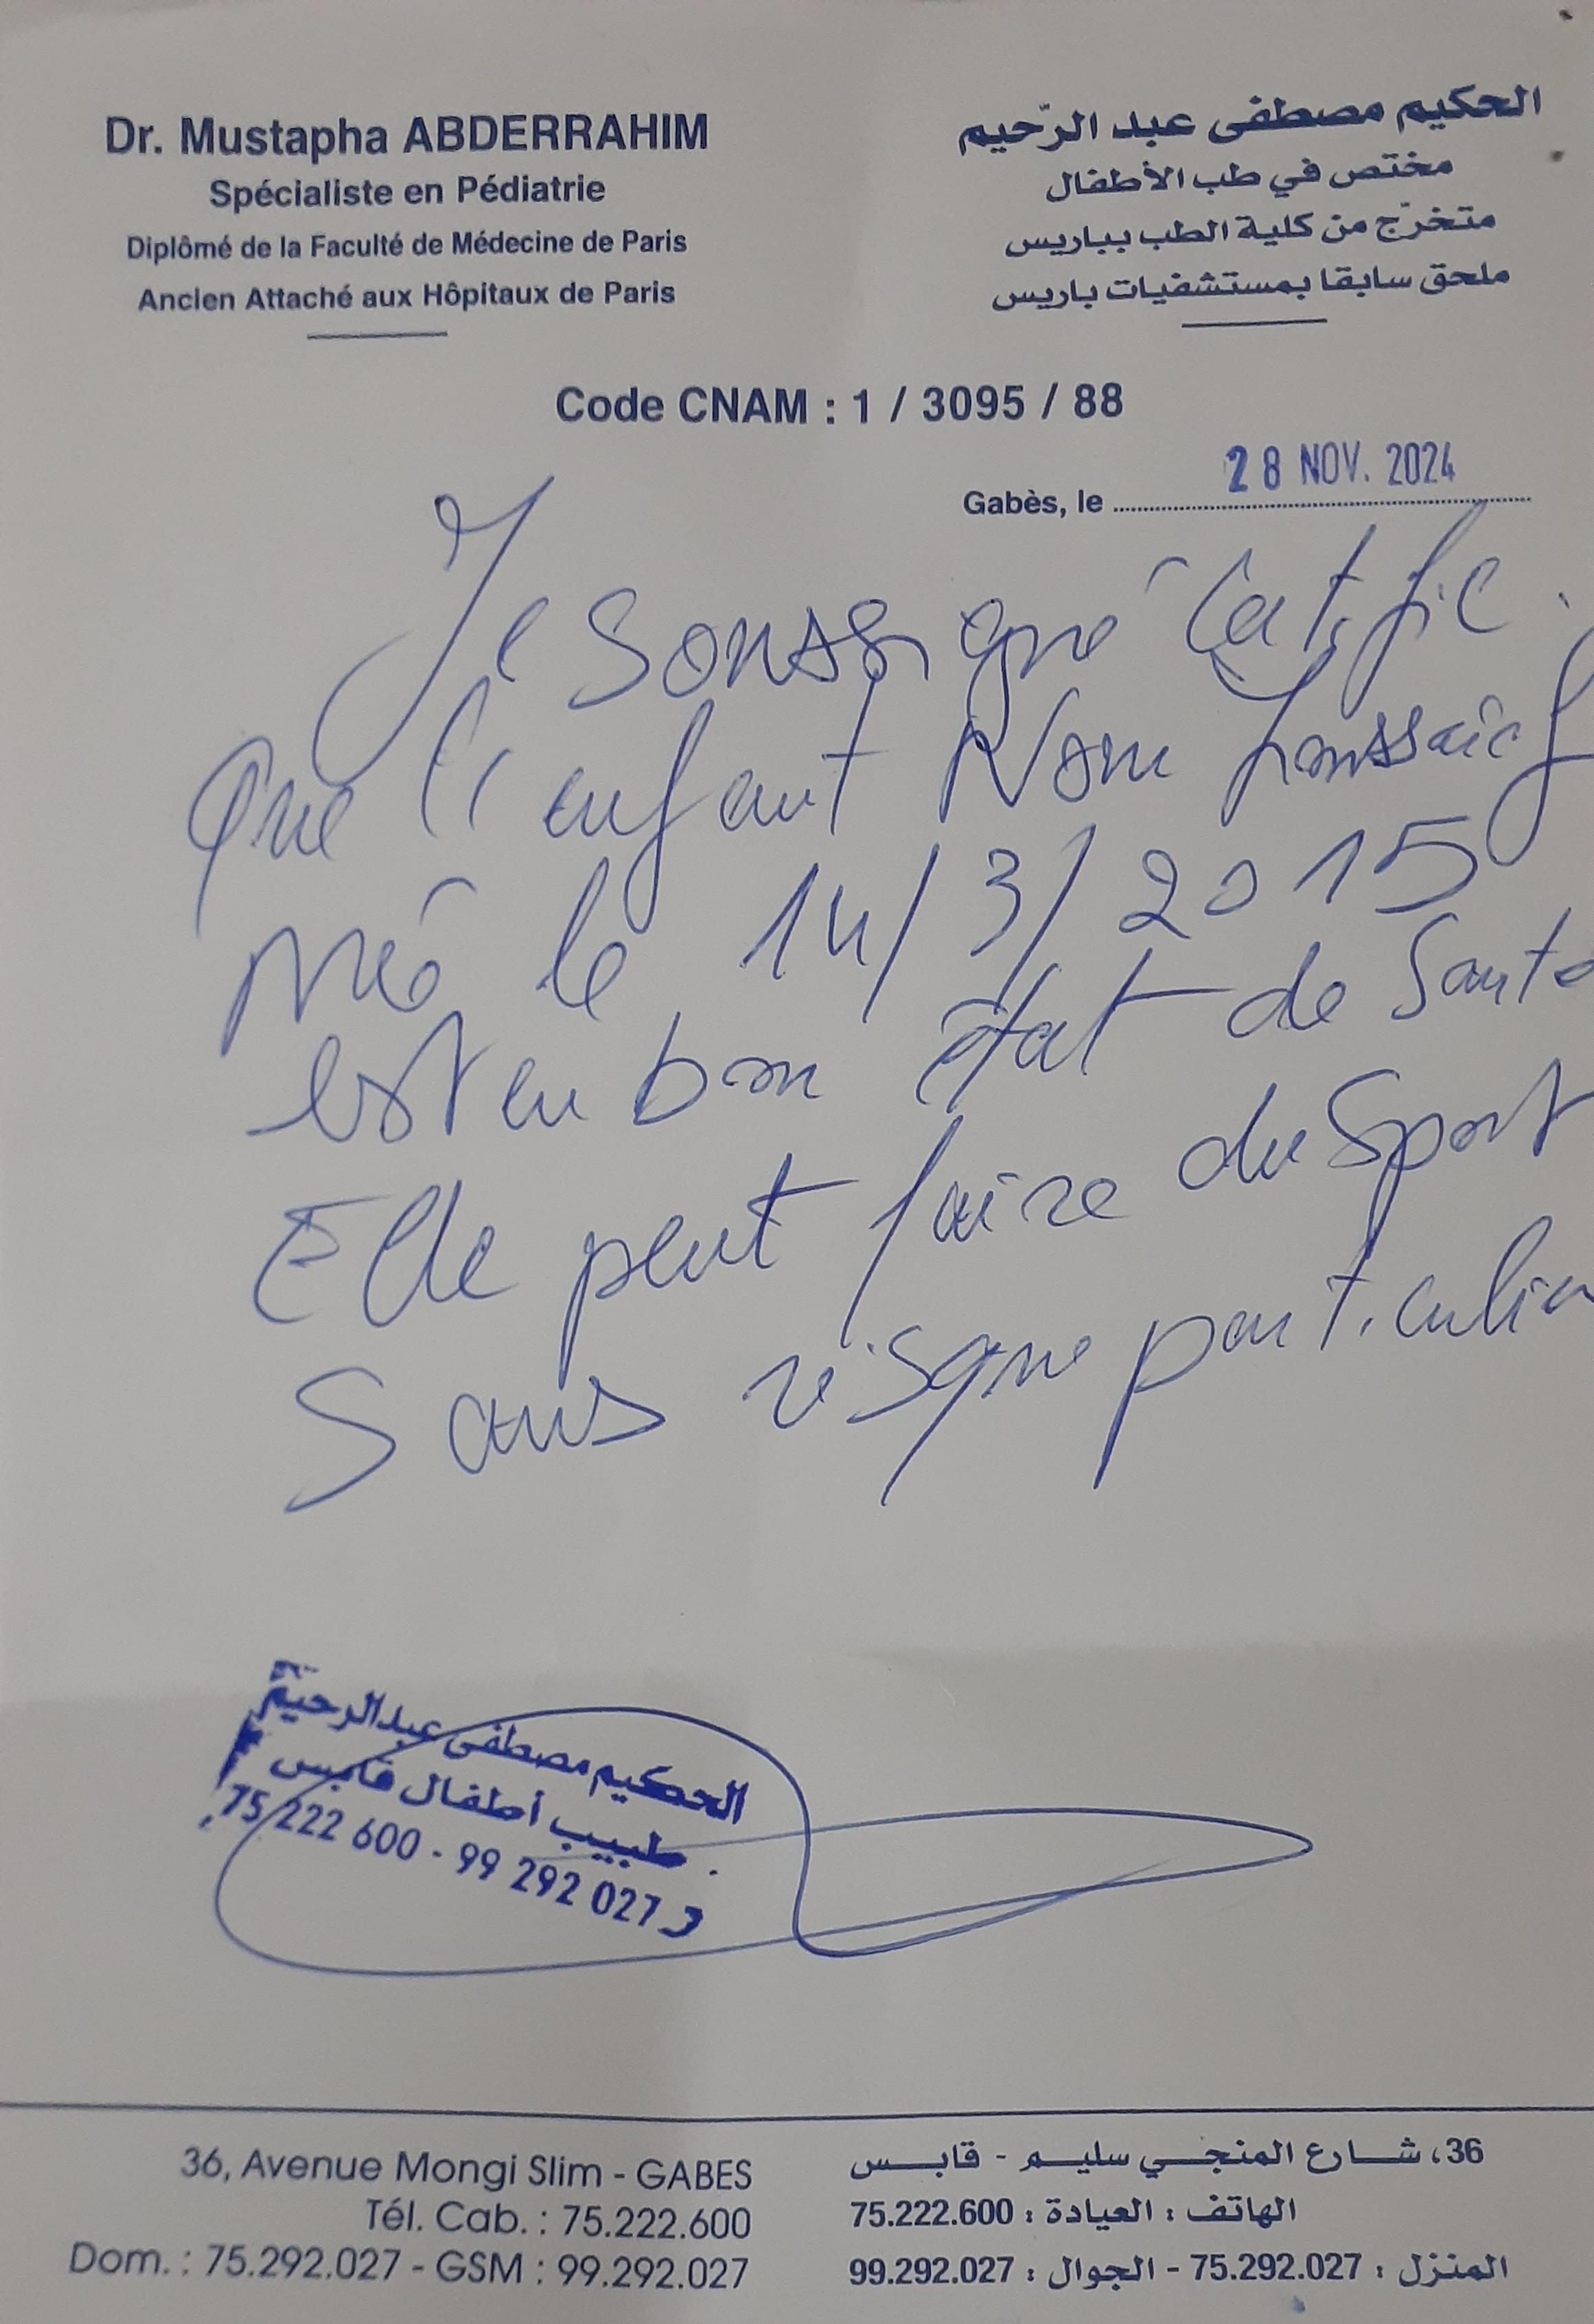 Dr. Mustapha ABDERRAHIM
Spécialiste en Pédiatrie
Diplômé de la Faculté de Médecine de Paris
Ancien Attaché aux Hôpitaux de Paris
الحكيم مصطفى عبد الرّحيم
مختص في طب الأطفال
متخرّج من كلية الطب بباريس
ملحق سابقا بمستشفيات باريس
Code CNAM : 1 / 3095 / 88
Gabès, le 28 NOV. 2024
Je soussigné Certifie
que l'enfant
né le 14/3/2015
est en bon état de Santé
Elle peut faire du Sport
Sans risque particulier
الحكيم مصطفى عبد الرحيم
طبيب أطفال قابس
75 222 600 - 99 292 027
36, Avenue Mongi Slim - GABES
Tél. Cab. : 75.222.600
Dom. : 75.292.027 - GSM : 99.292.027
36، شارع المنجي سليم - قابس
الهاتف : العيادة : 75.222.600
المنزل : 75.292.027 - الجوال : 99.292.027